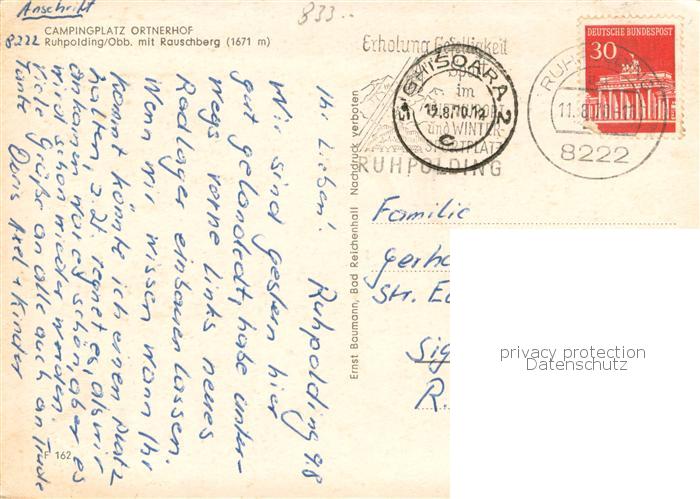 Anschrift
833..
8222 CAMPINGPLATZ ORTNERHOF
Ruhpolding/Obb. mit Rauschberg (1671 m)
Erholung Geselligkeit
Sport
im
und WINTER-
SPORTPLATZ
RUHPOLDING
SIGHISOARA 2
15.8.70.12
c
RUHPOLDING
11.8.70
8222
DEUTSCHE BUNDESPOST
30
Ihr Lieben! Ruhpolding 9.8
Wir sind gestern hier
gut gelandet, habe unter-
wegs vorne links neues
Radlager einbauen lassen.
Wann wir wissen wann Ihr
kommt könnte ich einen Platz
halten z. Zt regnet es, als wir
ankamen war es schön, aber es
wird schon wieder werden.
Viele Grüße an alle auch an Trude
Tante Axel + Kinder
Ernst Baumann, Bad Reichenhall Nachdruck verboten
Familie
Gerh
Str.
Sig
R.
privacy protection
Datenschutz
F 162